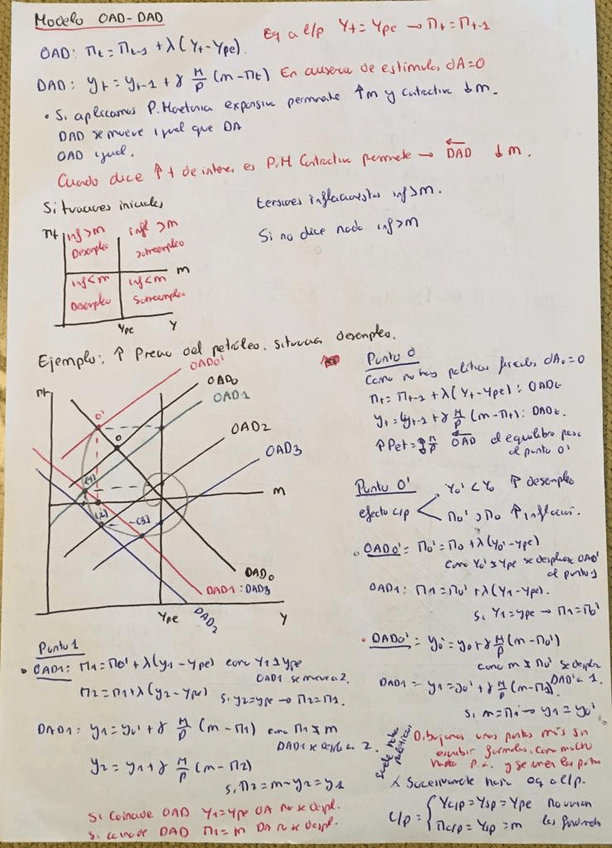 Modelo OAD-DAD
OAD: Πt = Πt-1 + λ(Yt - Ype). Eq a l/p Yt = Ype → Πt = Πt-1
DAD: yt = yt-1 + γ M/P (m - Πt) En ausencia de estímulos dA=0
• Si aplicamos P. Monetaria expansiva permanente ↑m y contractiva ↓m.
DAD se mueve igual que DA
OAD igual.
Cuando dice ↑ t de interes es P.M Contractiva permanente → DAD ↓m.
Situaciones iniciales
tensiones inflacionistas inf>m.
Si no dice nada inf>m
Πt
inf>m
Desempleo
infl>m
Sobreempleo
m
inf<m
Desempleo
inf<m
Sobreempleo
Ype
Y
Ejemplo: ↑ Precio del petróleo. situación desempleo.
Πt
OAD0'
OAD0
OAD1
OAD2
OAD3
0'
0
(1)
(2)
(3)
m
DAD0
DAD1: DAD3
DAD2
Ype
Y
Punto 0
Como no hay políticas fiscales dA0=0
Πt = Πt-1 + λ(Yt - Ype): OADt
yt = yt-1 + γ M/P (m - Πt): DADt.
↑Pet = OAD el equilibrio pasa
al punto 0'
Punto 0'
efecto c/p
Y0' < Y0 ↑ desempleo
Π0' > Π0 ↑ inflación.
• OAD0' = Π0' = Π0 + λ(Y0' - Ype)
como Y0' ≠ Ype se desplaza OAD0'
al punto 1
OAD1: Π1 = Π0' + λ(Y1 - Ype).
Si Y1 = Ype → Π1 = Π0'
• DAD0' = y0' = y0 + γ M/P (m - Π0')
como m ≠ Π0' se desplaza
DAD' a 1.
DAD1 = y1 = y0' + γ M/P (m - Π1)
Si m = Π1 → y1 = y0'
Punto 1
• OAD1: Π1 = Π0' + λ(y1 - ype) como Y1 ≠ ype
OAD1 se mueve a 2.
Π2 = Π1 + λ(y2 - ype) si y2 = ype → Π2 = Π1.
DAD1: y1 = y0' + γ M/P (m - Π1) como Π1 ≠ m
DAD1 se desplaza a 2.
y2 = y1 + γ M/P (m - Π2)
si Π2 = m → y2 = y1
Si coincide OAD Y1 = Ype OA no se despl.
Si coincide DAD Π1 = m DA no se despl.
Dibujamos unos puntos más sin
escribir formulas, como mucho
hasta
y se unen los puntos
Sucesivamente hacia eq a l/p.
C/p =
= Ype no varian
= m las